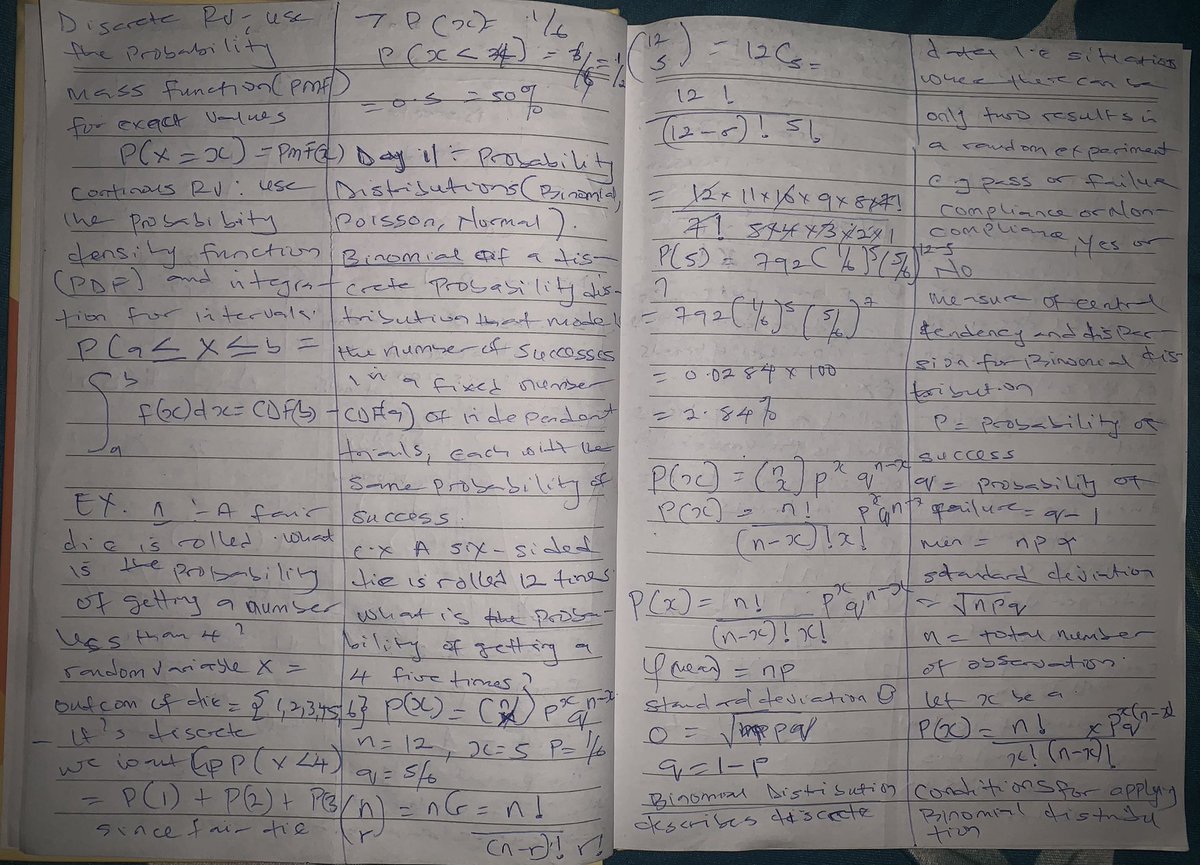 Discrete RV- use
the Probability
mass function (PMF)
for exact values
P(X = x) = PMF(x)
Continous RV: use
the probability
density function
(PDF) and integra-
tion for intervals.
P(a ≤ X ≤ b =
∫ₐᵇ f(x)dx = CDF(b) - CDF(a)
EX. 1 :- A fair
die is rolled. what
is the probability
of getting a number
less than 4?
random variable X =
outcom of die = {1,2,3,4,5,6}
it's discrete
we want P(x<4)
= P(1) + P(2) + P(3
since fair die
→ P(x)= 1/6
P(x < 4) = 3/6 = 1/2
= 0.5 = 50%
Day 11 :- Probability
Distributions (Binomial,
Poisson, Normal).
Binomial of a dis-
crete Probability dis-
tribution that model
the number of successes
in a fixed number
of independent
trials, each with the
same probability of
success.
e.x A six-sided
die is rolled 12 times
what is the proba-
bility of getting a
4 five times?
P(x) = (n x) p^x q^n-x
n = 12, x = 5 P = 1/6
q = 5/6
(n r) = nCr = n!
(n-r)! r!
(12 5) = 12C5 =
12 !
(12-r)! 5!
= 12 x 11 x 10 x 9 x 8 x 7!
7! 5 x 4 x 3 x 2 x 1
P(5) = 792 (1/6)^5 (5/6)^12-5
= 792 (1/6)^5 (5/6)^7
= 0.0284 x 100
= 2.84%
P(x) = (n x) p^x q^n-x
P(x) = n! p^x q^n-x
(n-x)! x!
P(x) = n! p^x q^n-x
(n-x)! x!
(mean) = np
standard deviation
σ = √npq
q = 1-p
Binomial Distribution
describes discrete
dates i.e situation
where there can be
only two results in
a random experiment
e g pass or failure
compliance or Non-
compliance, Yes or
No
measure of central
tendency and disper-
sion for Binomial dis
tribution
P = probability of
success
q = probability of
failure = q-1
men = np
standard deviation
= √npq
n = total number
of observation.
let x be a
P(x) = n! x p^x q^(n-x)
x! (n-x)!
Conditions for applying
Binomial distribu
tion